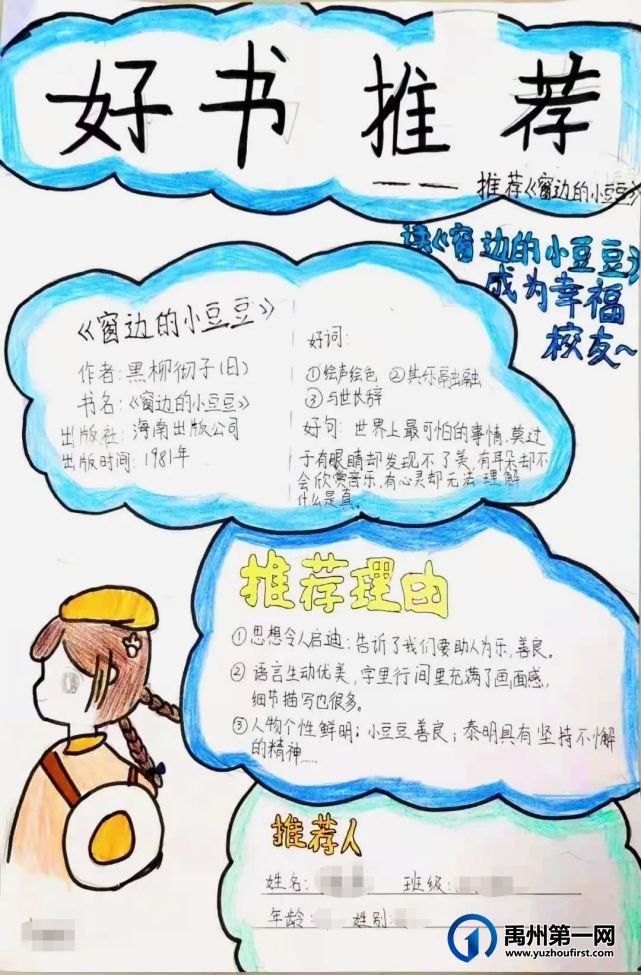 好书推荐
——推荐《窗边的小豆豆》
读《窗边的小豆豆》
成为幸福
校友~
《窗边的小豆豆》
作者:黑柳彻子(日)
书名:《窗边的小豆豆》
出版社:海南出版公司
出版时间:1981年
好词:
①绘声绘色 ②其乐融融
③与世长辞
好句:世界上最可怕的事情,莫过
于有眼睛却发现不了美,有耳朵却不
会欣赏音乐,有心灵却无法理解
什么是真。
推荐理由
①思想令人启迪:告诉了我们要助人为乐,善良。
②语言生动优美,字里行间里充满了画面感,
细节描写也很多。
③人物个性鲜明;小豆豆善良;泰明具有坚持不懈
的精神……
推荐人
姓名: 班级:
年龄: 姓别:
禹州第一网
www.yuzhoufirst.com